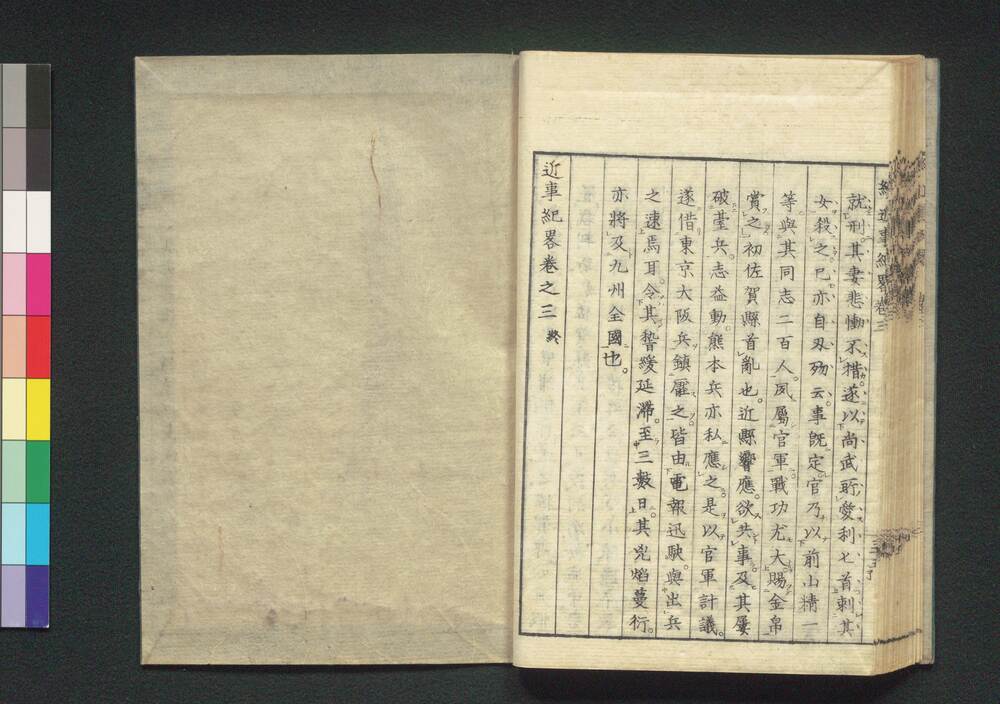 就刑。其妻悲慟不措遂以尚武所愛利匕首刺其
女殺之。已亦自刃殉云。事既定。官乃以前山精一
等與其同志二百人。夙屬官軍戰功尤大賜金帛
賞之。初佐賀縣首亂也。近縣響應。欲共事及其屢
破臺兵。志益動。熊本兵亦私應之是以官軍計議。
遂借東京大阪兵鎮壓之。皆由電報迅駛。與出兵
之速焉耳。令其暫緩延滯。至三數日。其兇焰蔓衍。
亦將及九州全國也。
近事紀畧卷之三 終